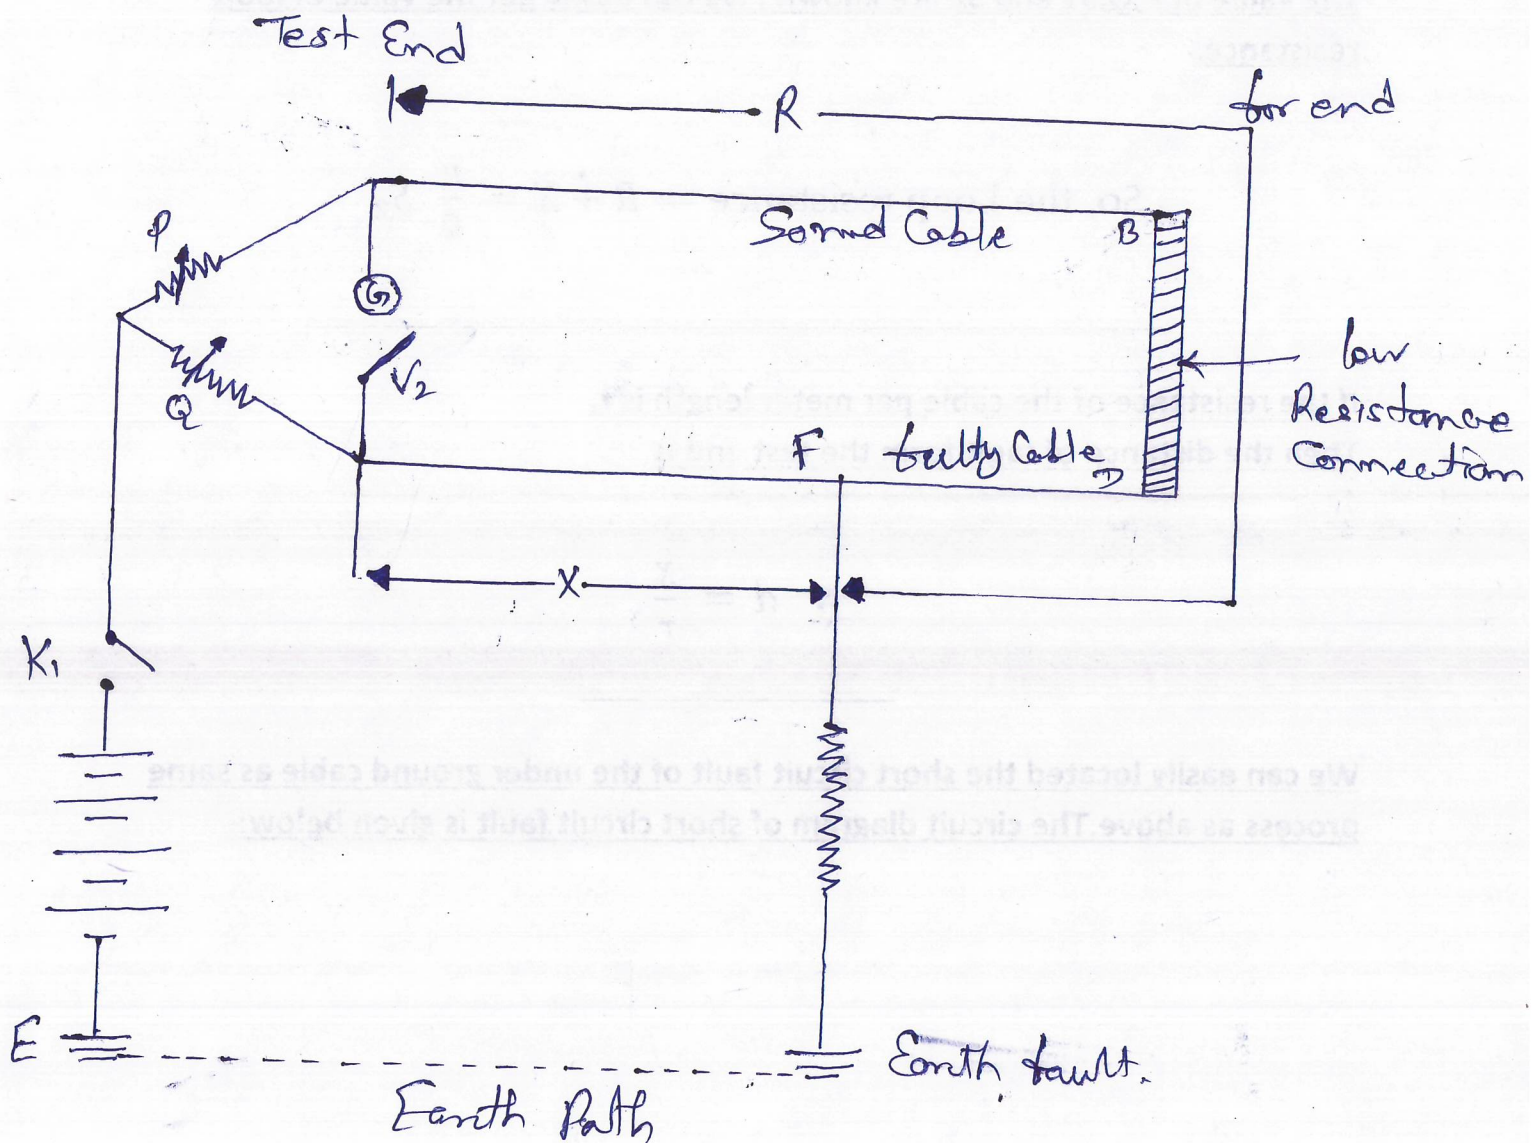 Test End
R
for end
P
Sound Cable
B
G
V2
low
Resistance
Connection
Q
F
faulty Cable
D
X
K1
E
Earth fault.
Earth Path